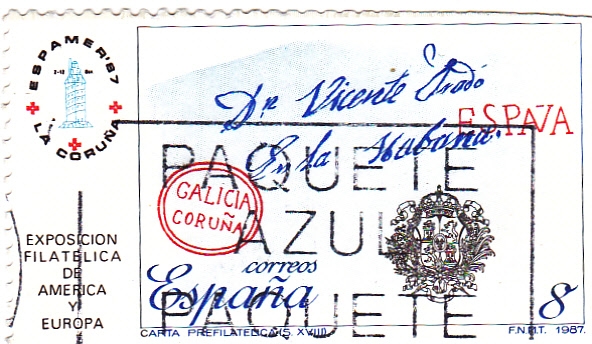 ESPAMER'87
2-12 Oct
LA CORUÑA
EXPOSICION
FILATELICA
DE
AMERICA
Y
EUROPA
Dn. Vicente Prado
En la Habana.
ESPAÑA
PAQUETE
GALICIA
CORUÑA
AZUL
correos
España
PAQUETE
8
CARTA PREFILATELICA (S. XVIII)
F.N.M.T. 1987.